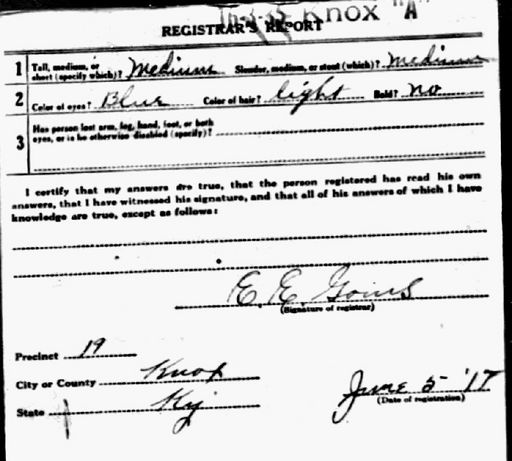 Knox "A"
REGISTRAR'S REPORT
1 Tall, medium, or short (specify which)? Medium Slender, medium, or stout (which)? Medium
2 Color of eyes? Blue Color of hair? light Bald? no
3 Has person lost arm, leg, hand, foot, or both
eyes, or is he otherwise disabled (specify)?
I certify that my answers are true, that the person registered has read his own
answers, that I have witnessed his signature, and that all of his answers of which I have
knowledge are true, except as follows:
E. E. Goins
(Signature of registrar)
Precinct 19
City or County Knox
State Ky
June 5 '17
(Date of registration)